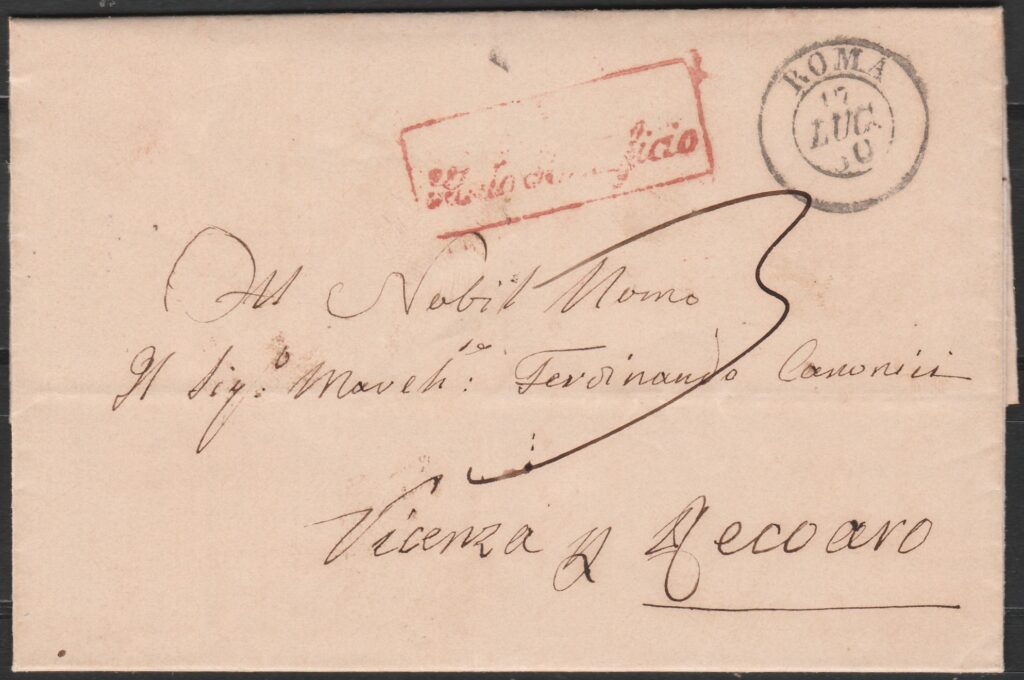 ROMA
17
LUG
50
Al Nobil Uomo
3
Il Sig.º March:se Ferdinando Canonici
Vicenza p Recoaro